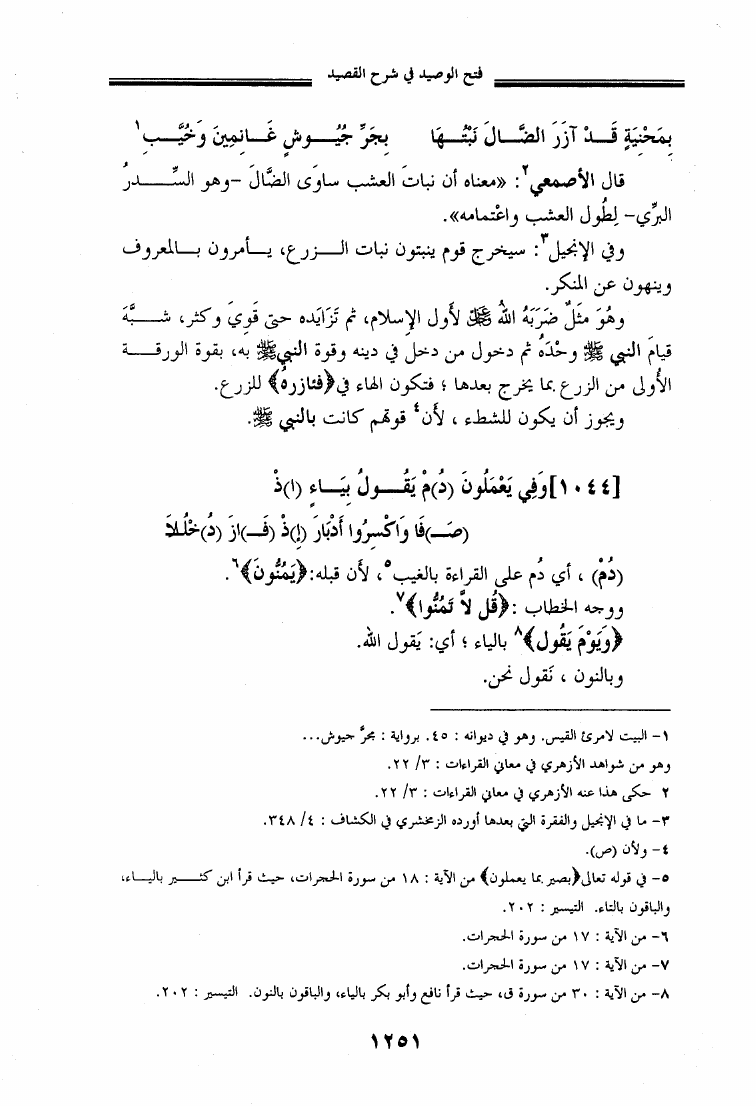 فتح الوصيد في شرح القصيد
بِمَحْنِيَةٍ قَــدْ آزَرَ الضَّــالَ نَبْتُــهَا بِجَرِّ جُيُــوشٍ غَــانِمِينَ وَخُيَّــبِ١
قال الأصمعي٢: «معناه أن نباتَ العشب ساوَى الضَّالَ -وهو السِّــدرُ
البرِّي- لِطُول العشب واعْتمامه».
وفي الإنجيل٣: سيخرج قوم ينبتون نبات الــزرع، يــأمرون بــالمعروف
وينهون عن المنكر.
وهُوَ مَثلٌ ضَرَبَهُ اللهُ ﷻ لأول الإسلام، ثم تَزَايَده حتى قَوِيَ وكثر، شــبَّهَ
قيامَ النبي ﷺ وحْدَهُ ثم دخول من دخل في دينه وقوة النبي ﷺ به، بقوة الورقــة
الأُولى من الزرع بما يخرج بعدها ؛ فتكون الهاء في ﴿فئازره﴾ للزرع.
ويجوز أن يكون للشطء ، لأن٤ قوتهم كانت بالنبي ﷺ.
[١٠٤٤] وَفِي يَعْمَلُونَ (دُ)مْ يَقُــولُ بِيَــاءٍ (ا)ذْ
(صَــ)فَا وَاكْسِرُوا أَدْبَارَ (إِ)ذْ (فَــ)ازَ (دُ)خْلُــلاَ
(دُمْ) ، أي دُم على القراءة بالغيب٥، لأن قبله: ﴿يَمُنُّونَ﴾٦.
ووجه الخطاب : ﴿قُل لاَّ تَمُنُّوا﴾٧.
﴿وَيَوْمَ يَقُول﴾٨ بالياء ؛ أي: يَقول الله.
وبالنون ، نَقول نحن.
١- البيت لامرئ القيس. وهو في ديوانه : ٤٥. برواية : مجرَّ جيوش...
وهو من شواهد الأزهري في معاني القراءات : ٣/ ٢٢.
٢ حكى هذا عنه الأزهري في معاني القراءات : ٣/ ٢٢.
٣- ما في الإنجيل والفقرة التي بعدها أورده الزمخشري في الكشاف : ٤/ ٣٤٨.
٤- ولأن (ص).
٥- في قوله تعالى ﴿بصير بما يعملون﴾ من الآية : ١٨ من سورة الحجرات، حيث قرأ ابن كــثــير باليــاء،
والباقون بالتاء. التيسير : ٢٠٢.
٦- من الآية : ١٧ من سورة الحجرات.
٧- من الآية : ١٧ من سورة الحجرات.
٨- من الآية : ٣٠ من سورة ق، حيث قرأ نافع وأبو بكر بالياء، والباقون بالنون. التيسير : ٢٠٢.
١٢٥١